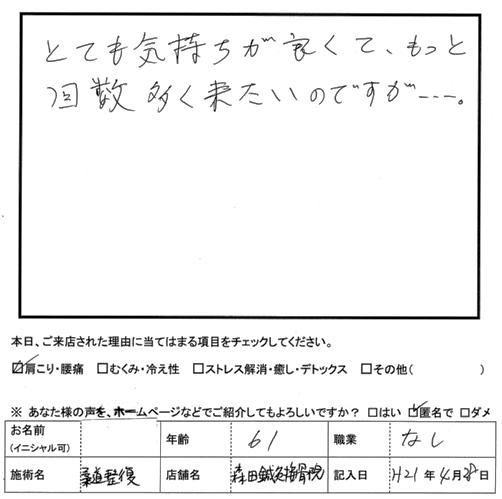 とても気持ちが良くて、もっと
回数多く来たいのですが---。
本日、ご来店された理由に当てはまる項目をチェックしてください。
☑肩こり・腰痛 □むくみ・冷え性 □ストレス解消・癒し・デトックス □その他( )
※ あなた様の声を、ホームページなどでご紹介してもよろしいですか? □はい ☑匿名で □ダメ
お名前
(イニシャル可)
年齢 61 職業 なし
施術名 柔道整復 店舗名 森田鍼灸接骨院 記入日 H21年4月28日